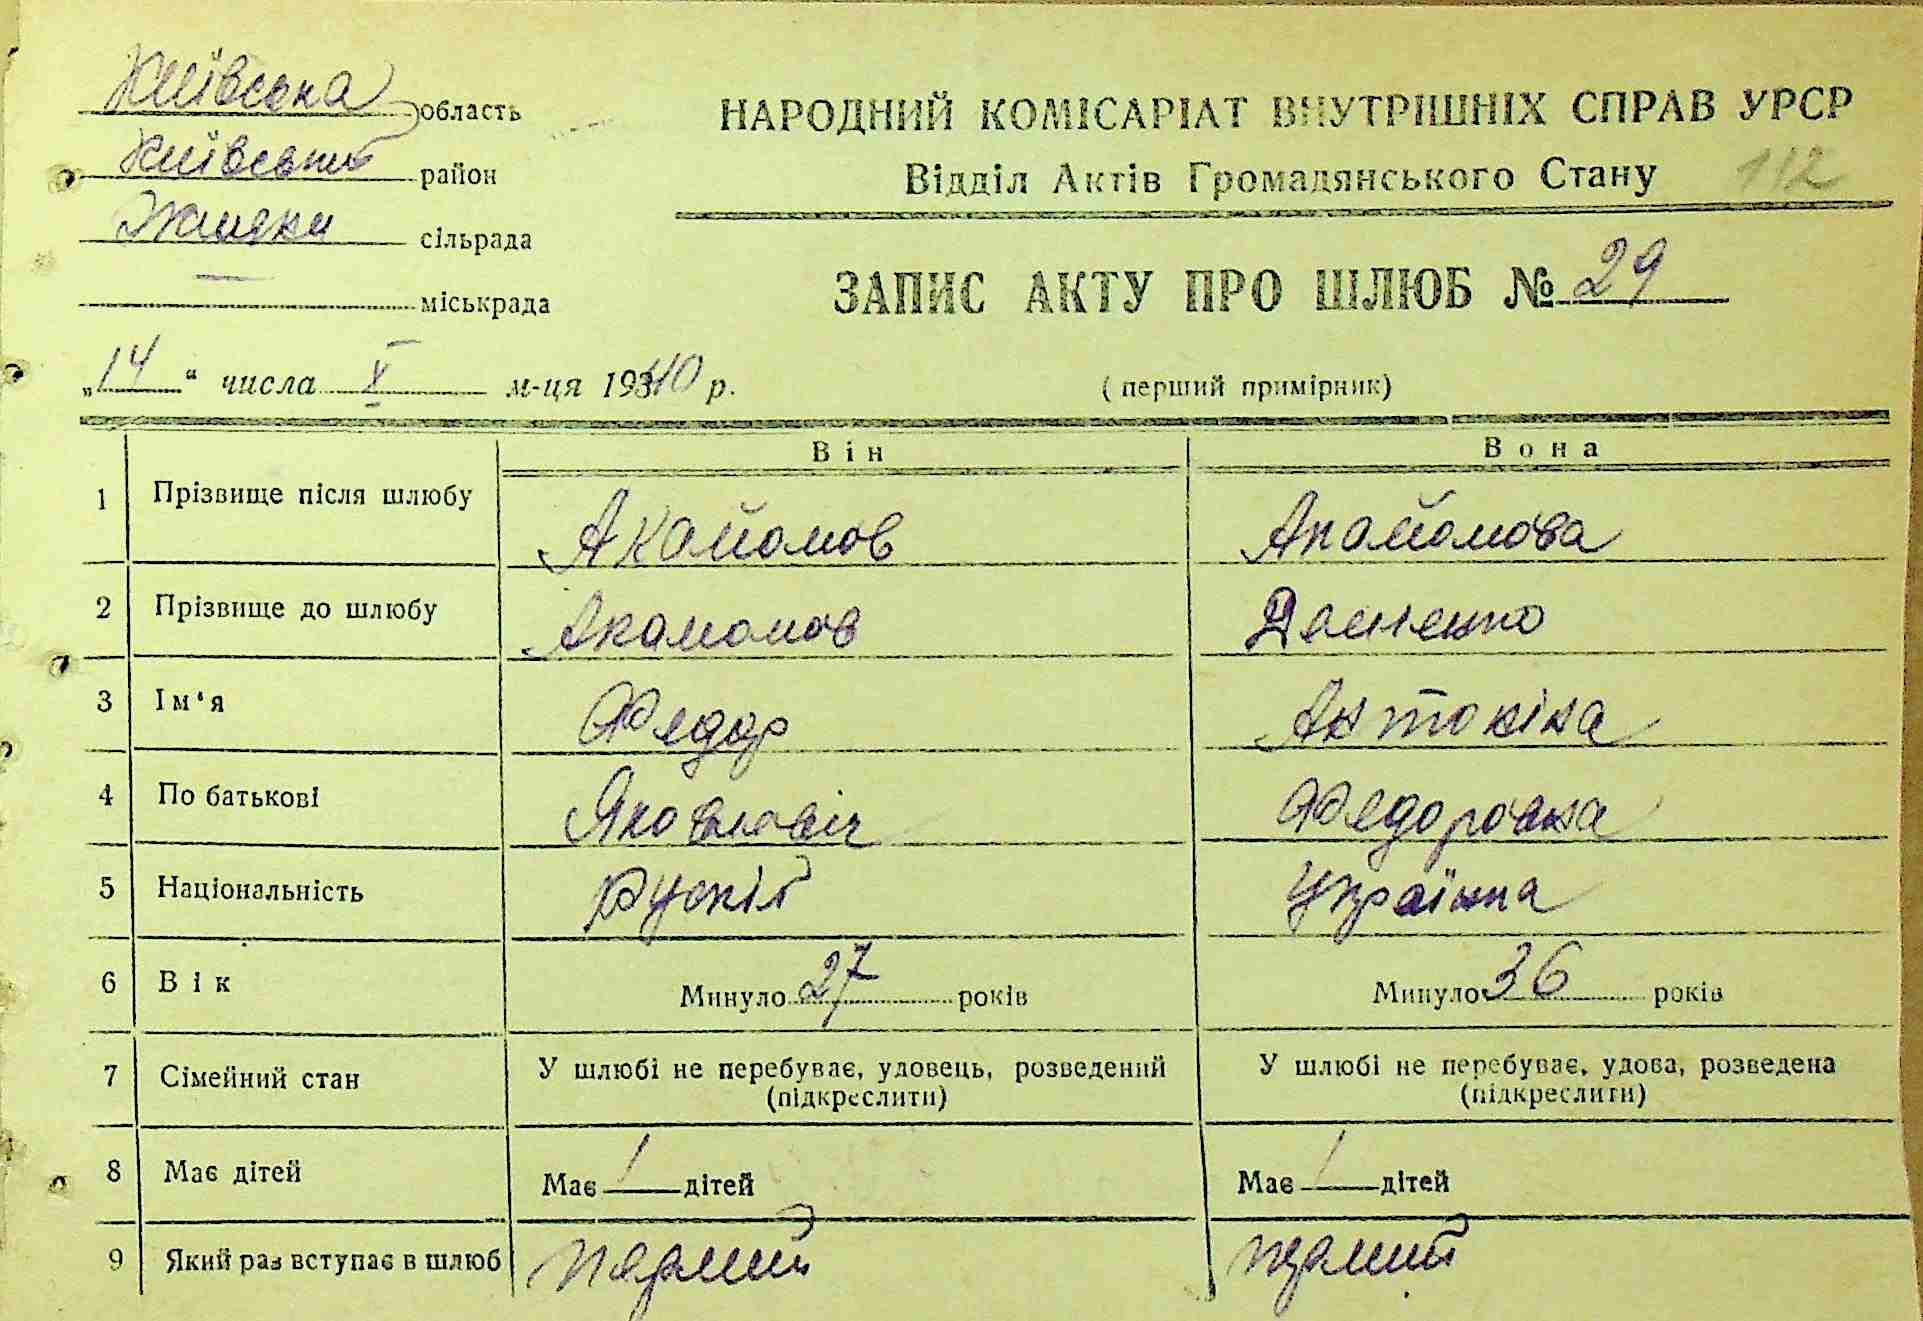 Київська область
Київський район
Жиляни сільрада
— міськрада
НАРОДНИЙ КОМІСАРІАТ ВНУТРІШНІХ СПРАВ УРСР
Відділ Актів Громадянського Стану 112
ЗАПИС АКТУ ПРО ШЛЮБ № 29
„14“ числа V м-ця 1940 р. (перший примірник)
Він Вона
1 Прізвище після шлюбу Акайомов Акайомова
2 Прізвище до шлюбу Акамомов
3 Ім'я Федор Антоніна
4 По батькові Яковлевіч Федоровна
5 Національність Рускій Українка
6 Вік Минуло 27 років Минуло 36 років
7 Сімейний стан У шлюбі не перебуває, удовець, розведений (підкреслити) У шлюбі не перебуває, удова, розведена (підкреслити)
8 Має дітей Має / дітей Має / дітей
9 Який раз вступає в шлюб первий первий